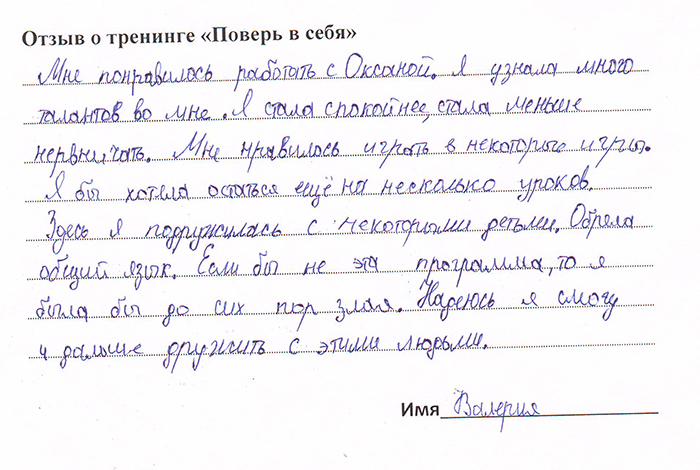 Отзыв о тренинге «Поверь в себя»
Мне понравилось работать с Оксаной. Я узнала много
талантов во мне. Я стала спокойнее, стала меньше
нервничать. Мне нравилось играть в некоторые игры.
Я бы хотела остаться ещё на несколько уроков.
Здесь я подружилась с некоторыми детьми. Обрела
общий язык. Если бы не эта программа, то я
была бы до сих пор злая. Надеюсь я смогу
и дальше дружить с этими людьми.
Имя Валерия